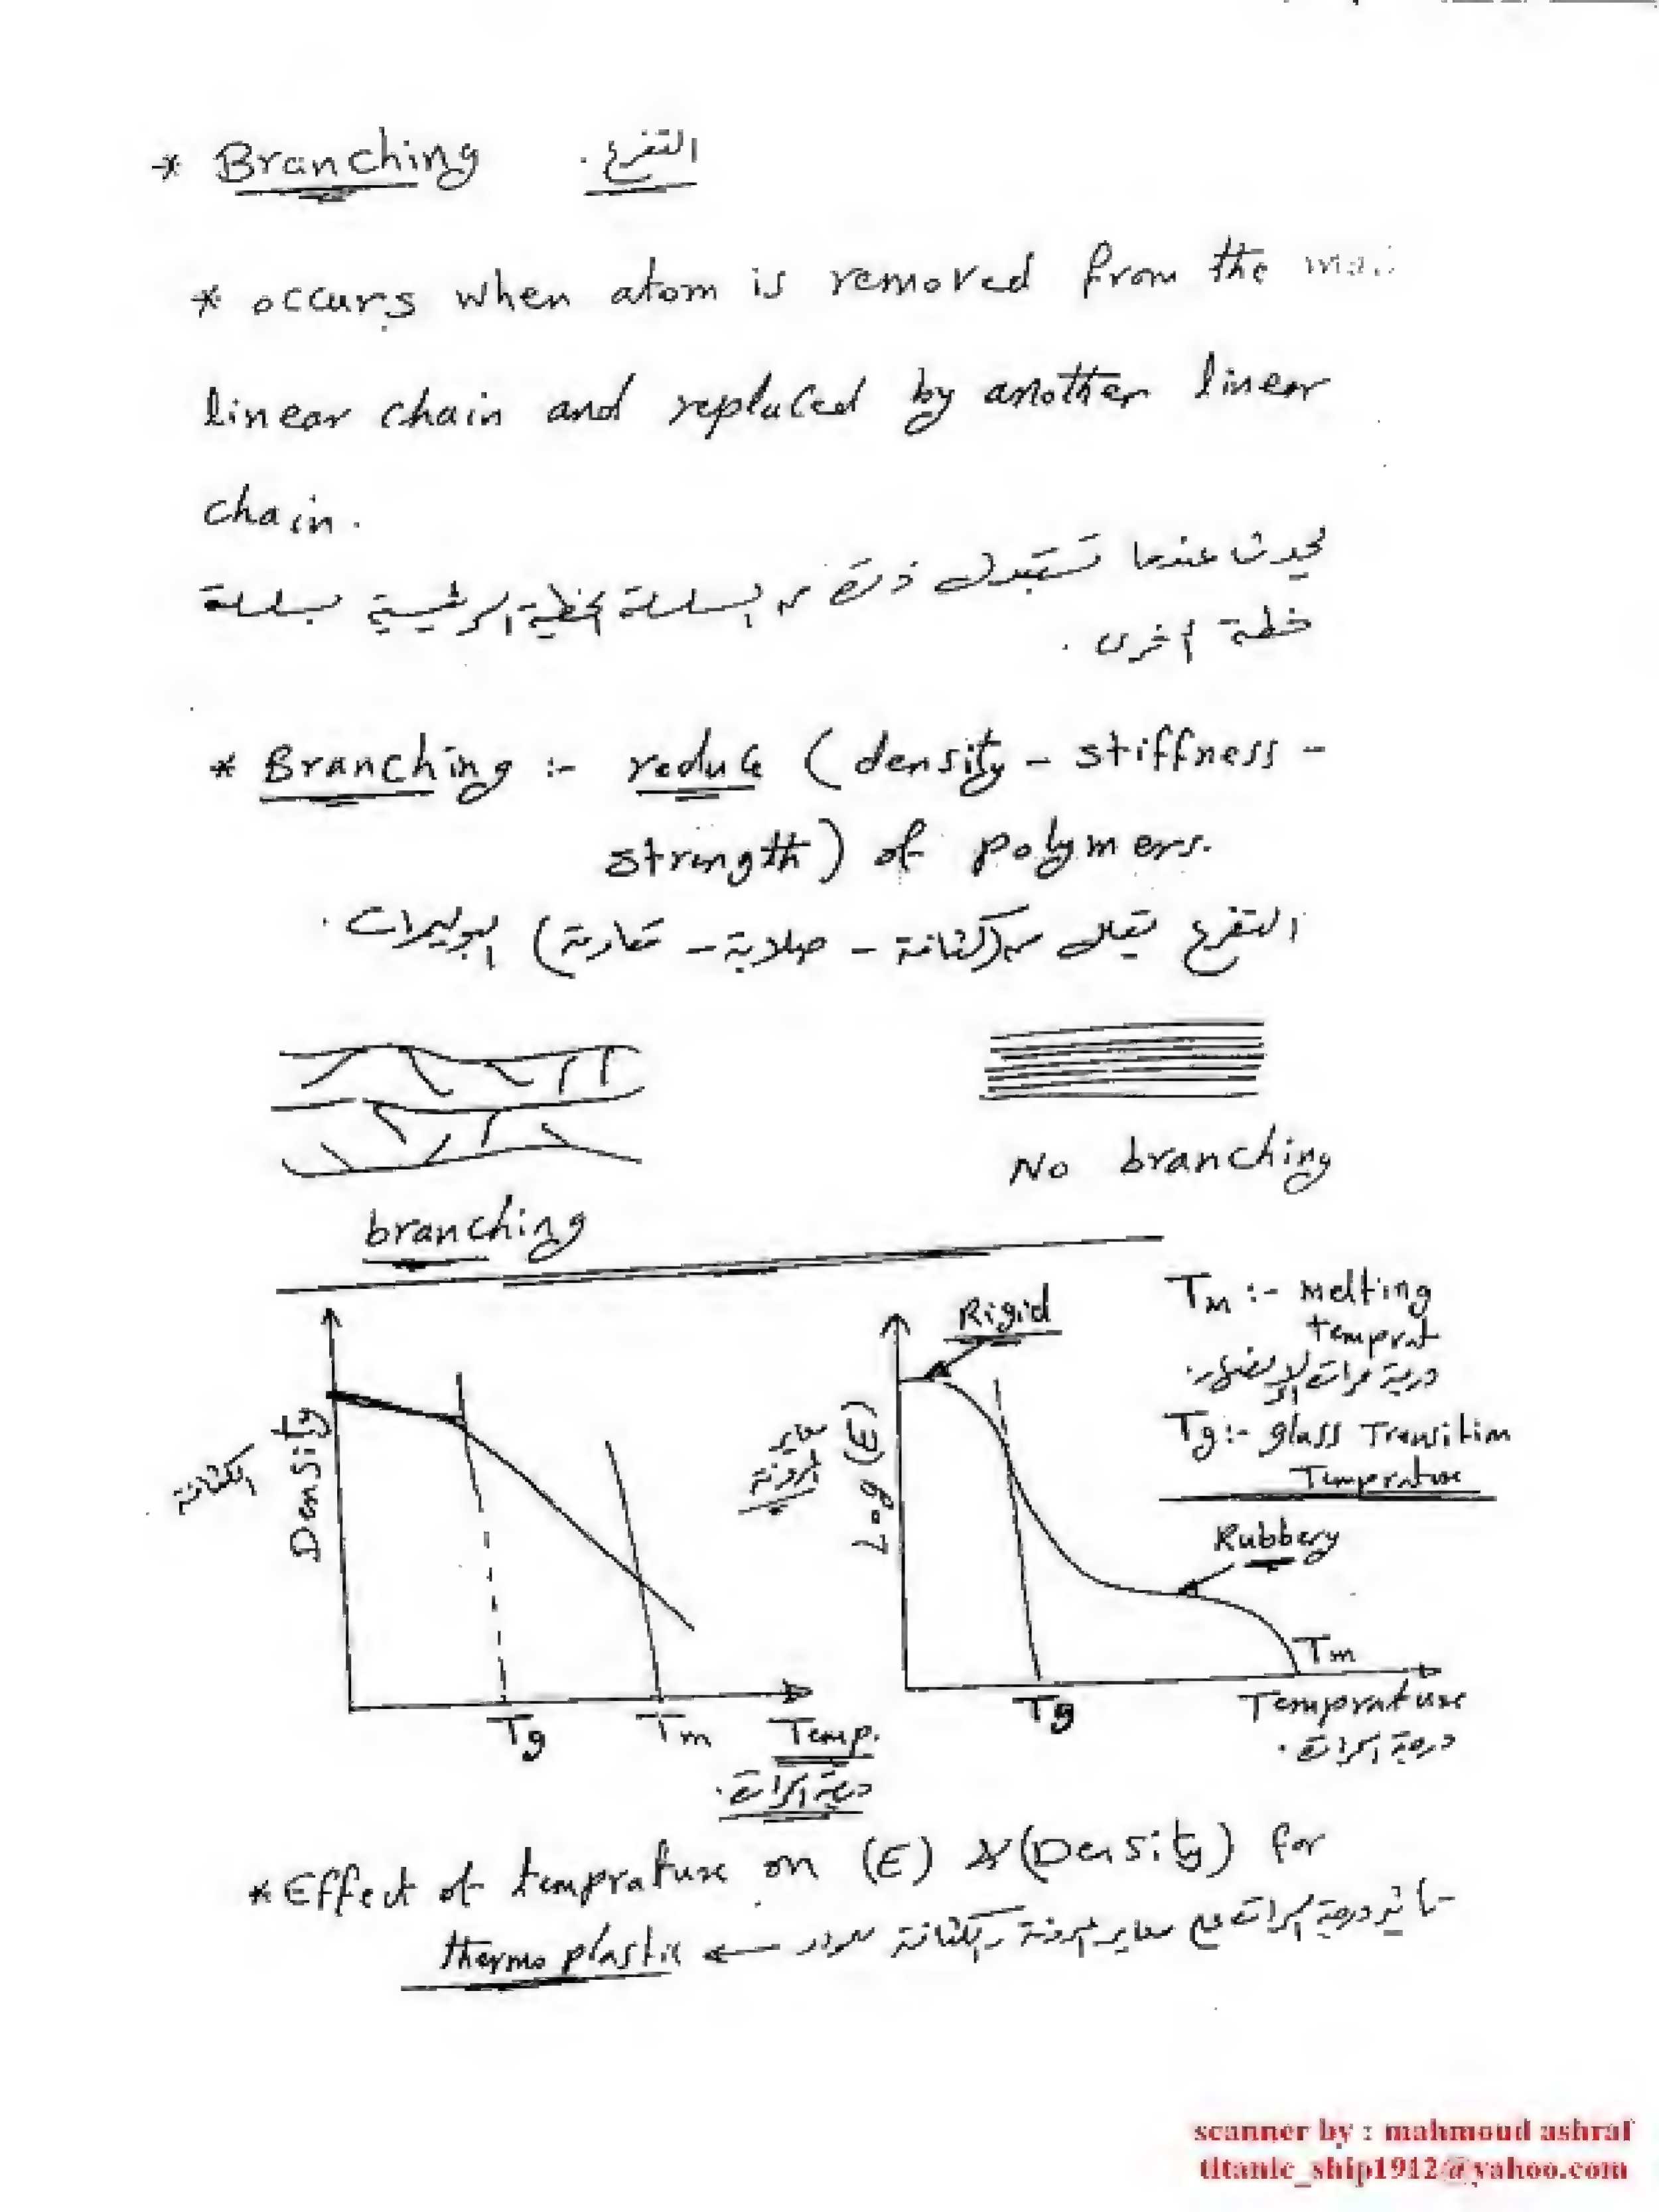 * Branching التفرع.
* occurs when atom is removed from the
linear chain and replaced by another linear
chain.
يحدث عندما تستبدل ذرة من السلسلة الخطية الرئيسية بسلسلة
خطية أخرى.
* Branching :- reduce (density - stiffness -
strength) of polymers.
التفرع تقلل من (كثافة - صلابة - مقاومة) البوليمرات.
No branching
branching
Tm :- melting
temprat
درجة حرارة الانصهار.
Tg :- glass Transition
Temprature
Rigid
Rubbery
Density
الكثافة
Tg
Tm
Temp.
درجة الحرارة.
Log (E)
معاير
المرونة
Tg
Tm
Temprature
درجة الحرارة.
* Effect of temprature on (E) & (Density) for
تأثير درجة الحرارة مع معاير المرونة والكثافة
thermo plastic ←
scanner by : mahmoud ashraf
titanic_ship1912@yahoo.com